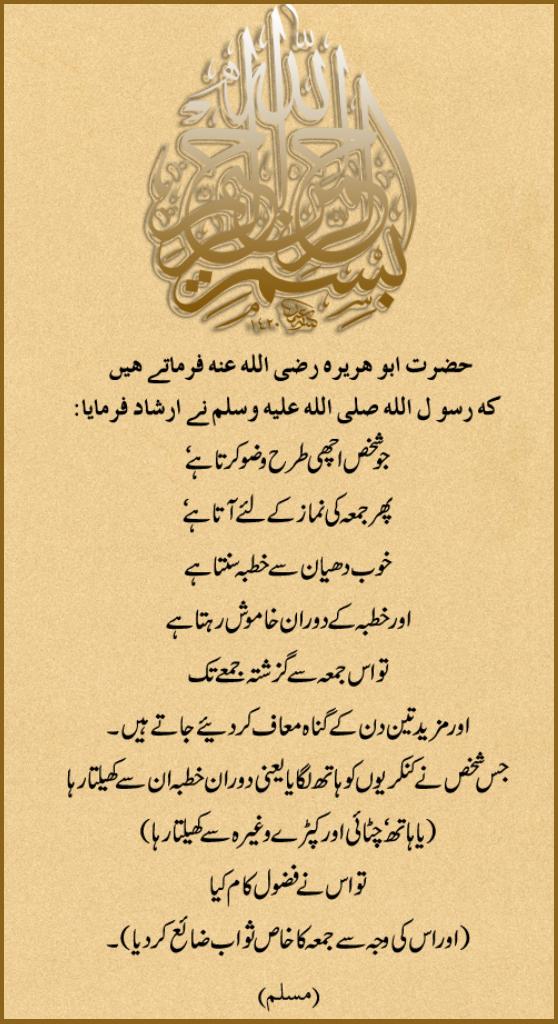 بسم الله الرحمن الرحيم
١٤٢٠
حضرت ابو هریره رضی الله عنه فرماتے هیں
که رسو ل الله صلی الله علیه وسلم نے ارشاد فرمایا:
جو شخص اچھی طرح وضو کرتا ہے‘
پھر جمعہ کی نماز کے لئے آتا ہے‘
خوب دھیان سے خطبہ سنتا ہے
اور خطبہ کے دوران خاموش رہتا ہے
تو اس جمعہ سے گزشتہ جمعے تک
اور مزید تین دن کے گناہ معاف کر دیئے جاتے ہیں۔
جس شخص نے کنکریوں کو ہاتھ لگایا یعنی دوران خطبہ ان سے کھیلتا رہا
(یا ہاتھ‘ چٹائی اور کپڑے وغیرہ سے کھیلتا رہا)
تو اس نے فضول کام کیا
(اور اس کی وجہ سے جمعہ کا خاص ثواب ضائع کر دیا)۔
(مسلم)